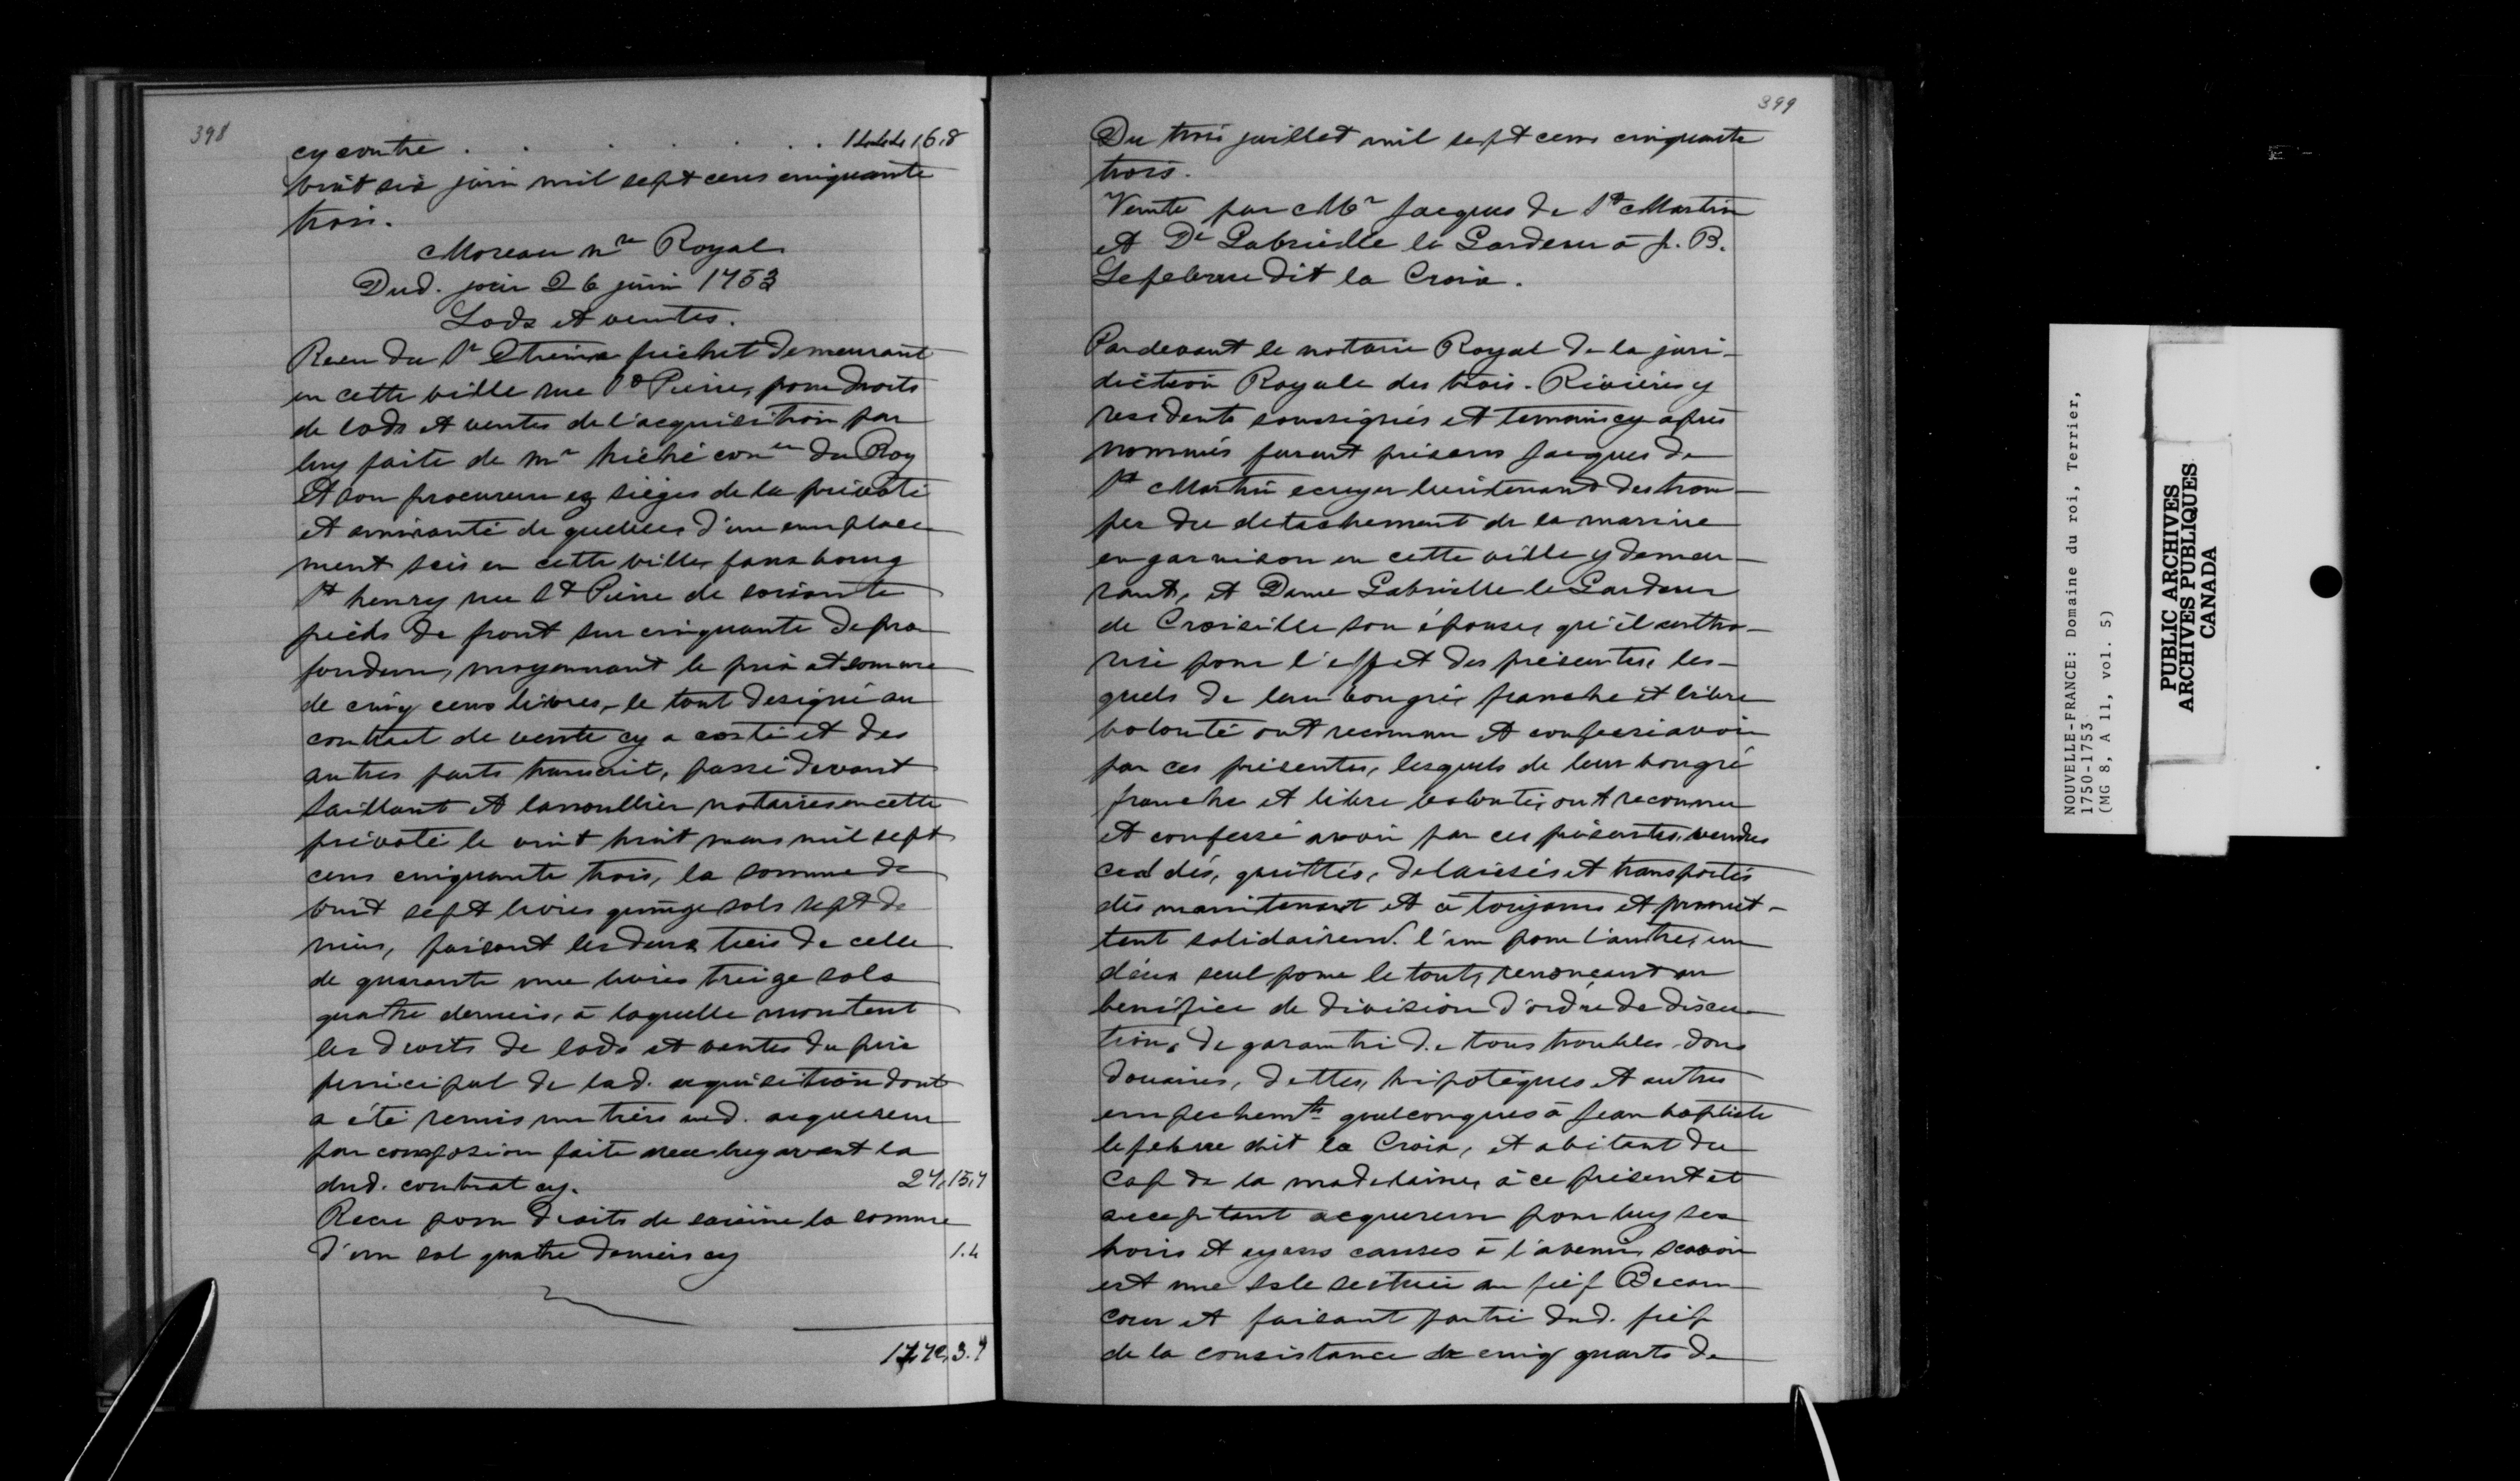 398
cy contre . . . . . . 1444,6,8
vint six juin mil sept cens cinquante
trois.
Moreau nre Royal
Dud. jour 26 juin 1753
Lods et ventes.
Recu du Sr Etienne frichet demeurant
en cette ville rue St Pierre, pour droits
de lods et ventes de l'acquisition par
luy faite de mr hiché conser du Roy
et son procureur ez sièges de la prévoté
et amirauté de quebec, d'un emplace
ment scis en cette ville, fauxbourg
St henry rue St Pierre de soixante
pieds de front sur cinquante de pro
fondeur, moyennant le prix et somme
de cinq cens livres, le tout designé au
contrat de vente cy a costé et des
autres parts transcrit, passé devant
Saillant et Lanoullier notaires en cette
prévoté le vint huit mars mil sept
cens cinquante trois, la somme de
vint sept livres quinze sols sept de
niers, faisant les deux tiers de celle
de quarante une livres treize sols
quatre deniers, à laquelle montent
les droits de lods et ventes du prix
principal de lad. acquisition dont
a été remis un tiers aud. acquereur
par composion faite avec luy avant la
dud. contrat cy. 27,15,7
Recu pour droits de saisine la somme
d'un sol quatre deniers cy 1.4
1472,3.7
399
Du trois juillet mil sept cens cinquante
trois.
Vente par Mr Jacques de St Martin
et De Gabrielle le Gardeur à J. B.
Lefebvre dit la Croix.
Pardevant le notaire Royal de la juri-
diction Royale des trois-Rivières y
residents soussignés et temoins cy après
nommés furent présens Jacques de
St Martin ecuyer lieutenant des trou-
pes du detachement de la marine
en garnison en cette ville y demeu-
rant, et Dame Gabrielle le Gardeur
de Croisille son épouse, qu'il autho-
rise pour l'effet des présentes, les-
quels de leur bongré, franche et libre
volonté ont reconnu et confessé avoir
par ces présentes, lesquels de leur bongré
franche et libre volonté, ont reconnu
et confessé avoir par ces présentes, vendus
ceddés, quittés, delaissés et transportés
dès maintenant et à toujours et promet-
tent solidairemt. l'un pour l'autre, un
d'eux seul pour le tout, renonçant au
benefice de division d'ordre de discu-
tion, de garantri de tous troubles dons
douaires, dettes, hipotèques et autres
empechemts quelconques à Jean baptiste
lefebvre dit la Croix, et abitant du
Cap de la madelaine, à ce présent et
acceptant acquereur pour luy ses
hoirs et ayans causes à l'avenir, scavoir
est une isle scituée au fief Becan
cour et faisant partie dud. fief
de la consistance de cinq quarts de
NOUVELLE-FRANCE: Domaine du roi, Terrier,
1750-1753
(MG 8, A 11, vol. 5)
PUBLIC ARCHIVES
ARCHIVES PUBLIQUES
CANADA